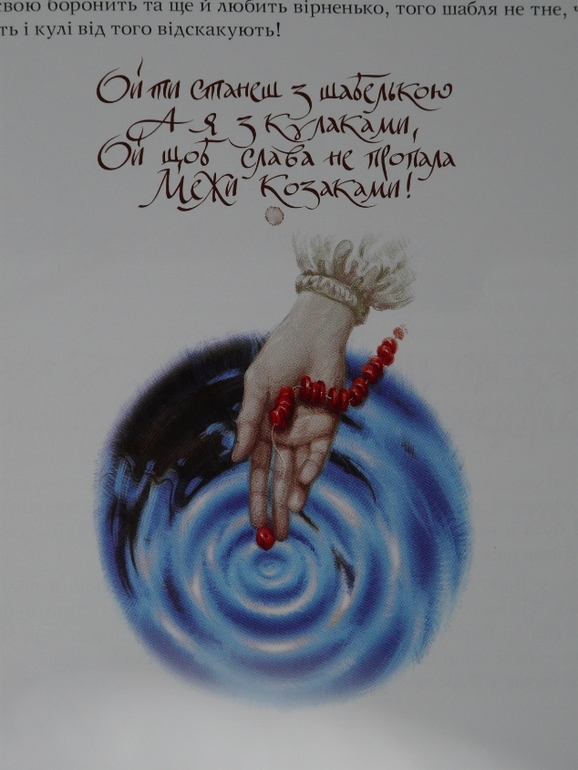 свою боронить та ще й любить вірненько, того шабля не тне,
ть і кулі від того відскакують!
Ой ти станеш з шабелькою
А я з кулаками,
Ой щоб слава не пропала
Межи Козаками!